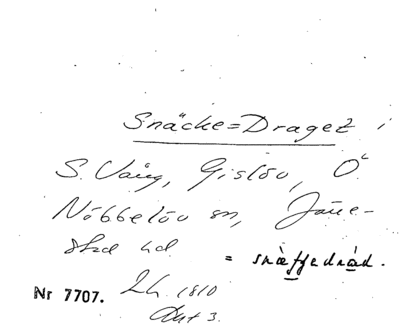 Snäcke=Draget i
S. Vång, Gislöv, Ö
Nöbbelöv sn, Järre-
stad hd = snäffjedrád.
Nr 7707. Lh. 1810
Akt 3.